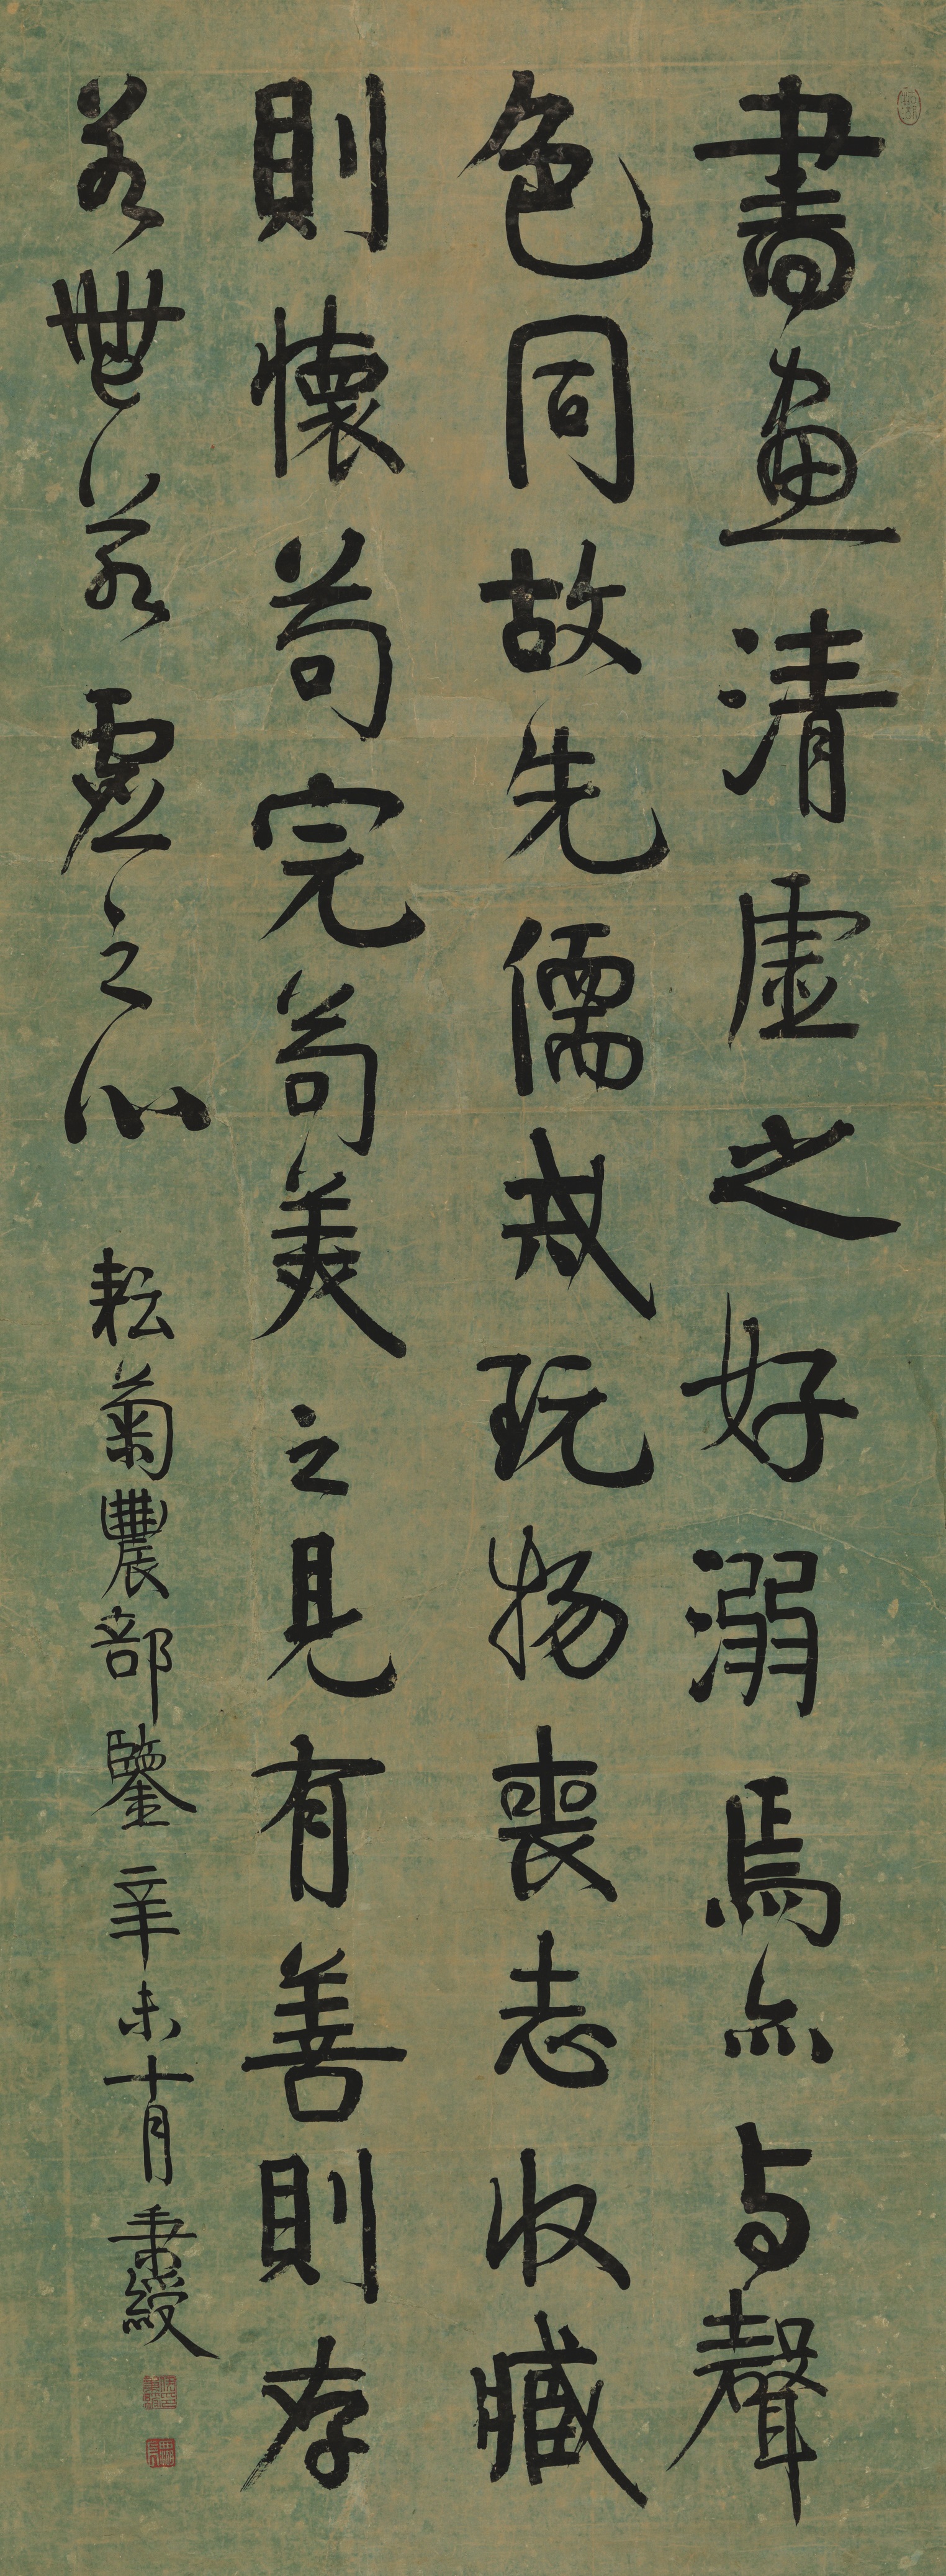 書畫清虛之好溺焉亦与聲
色同故先儒戒玩物喪志收藏
則懷苟完苟美之見有善則存
若無若虛之心 耘菊農部鑒 辛未十月 秉綬